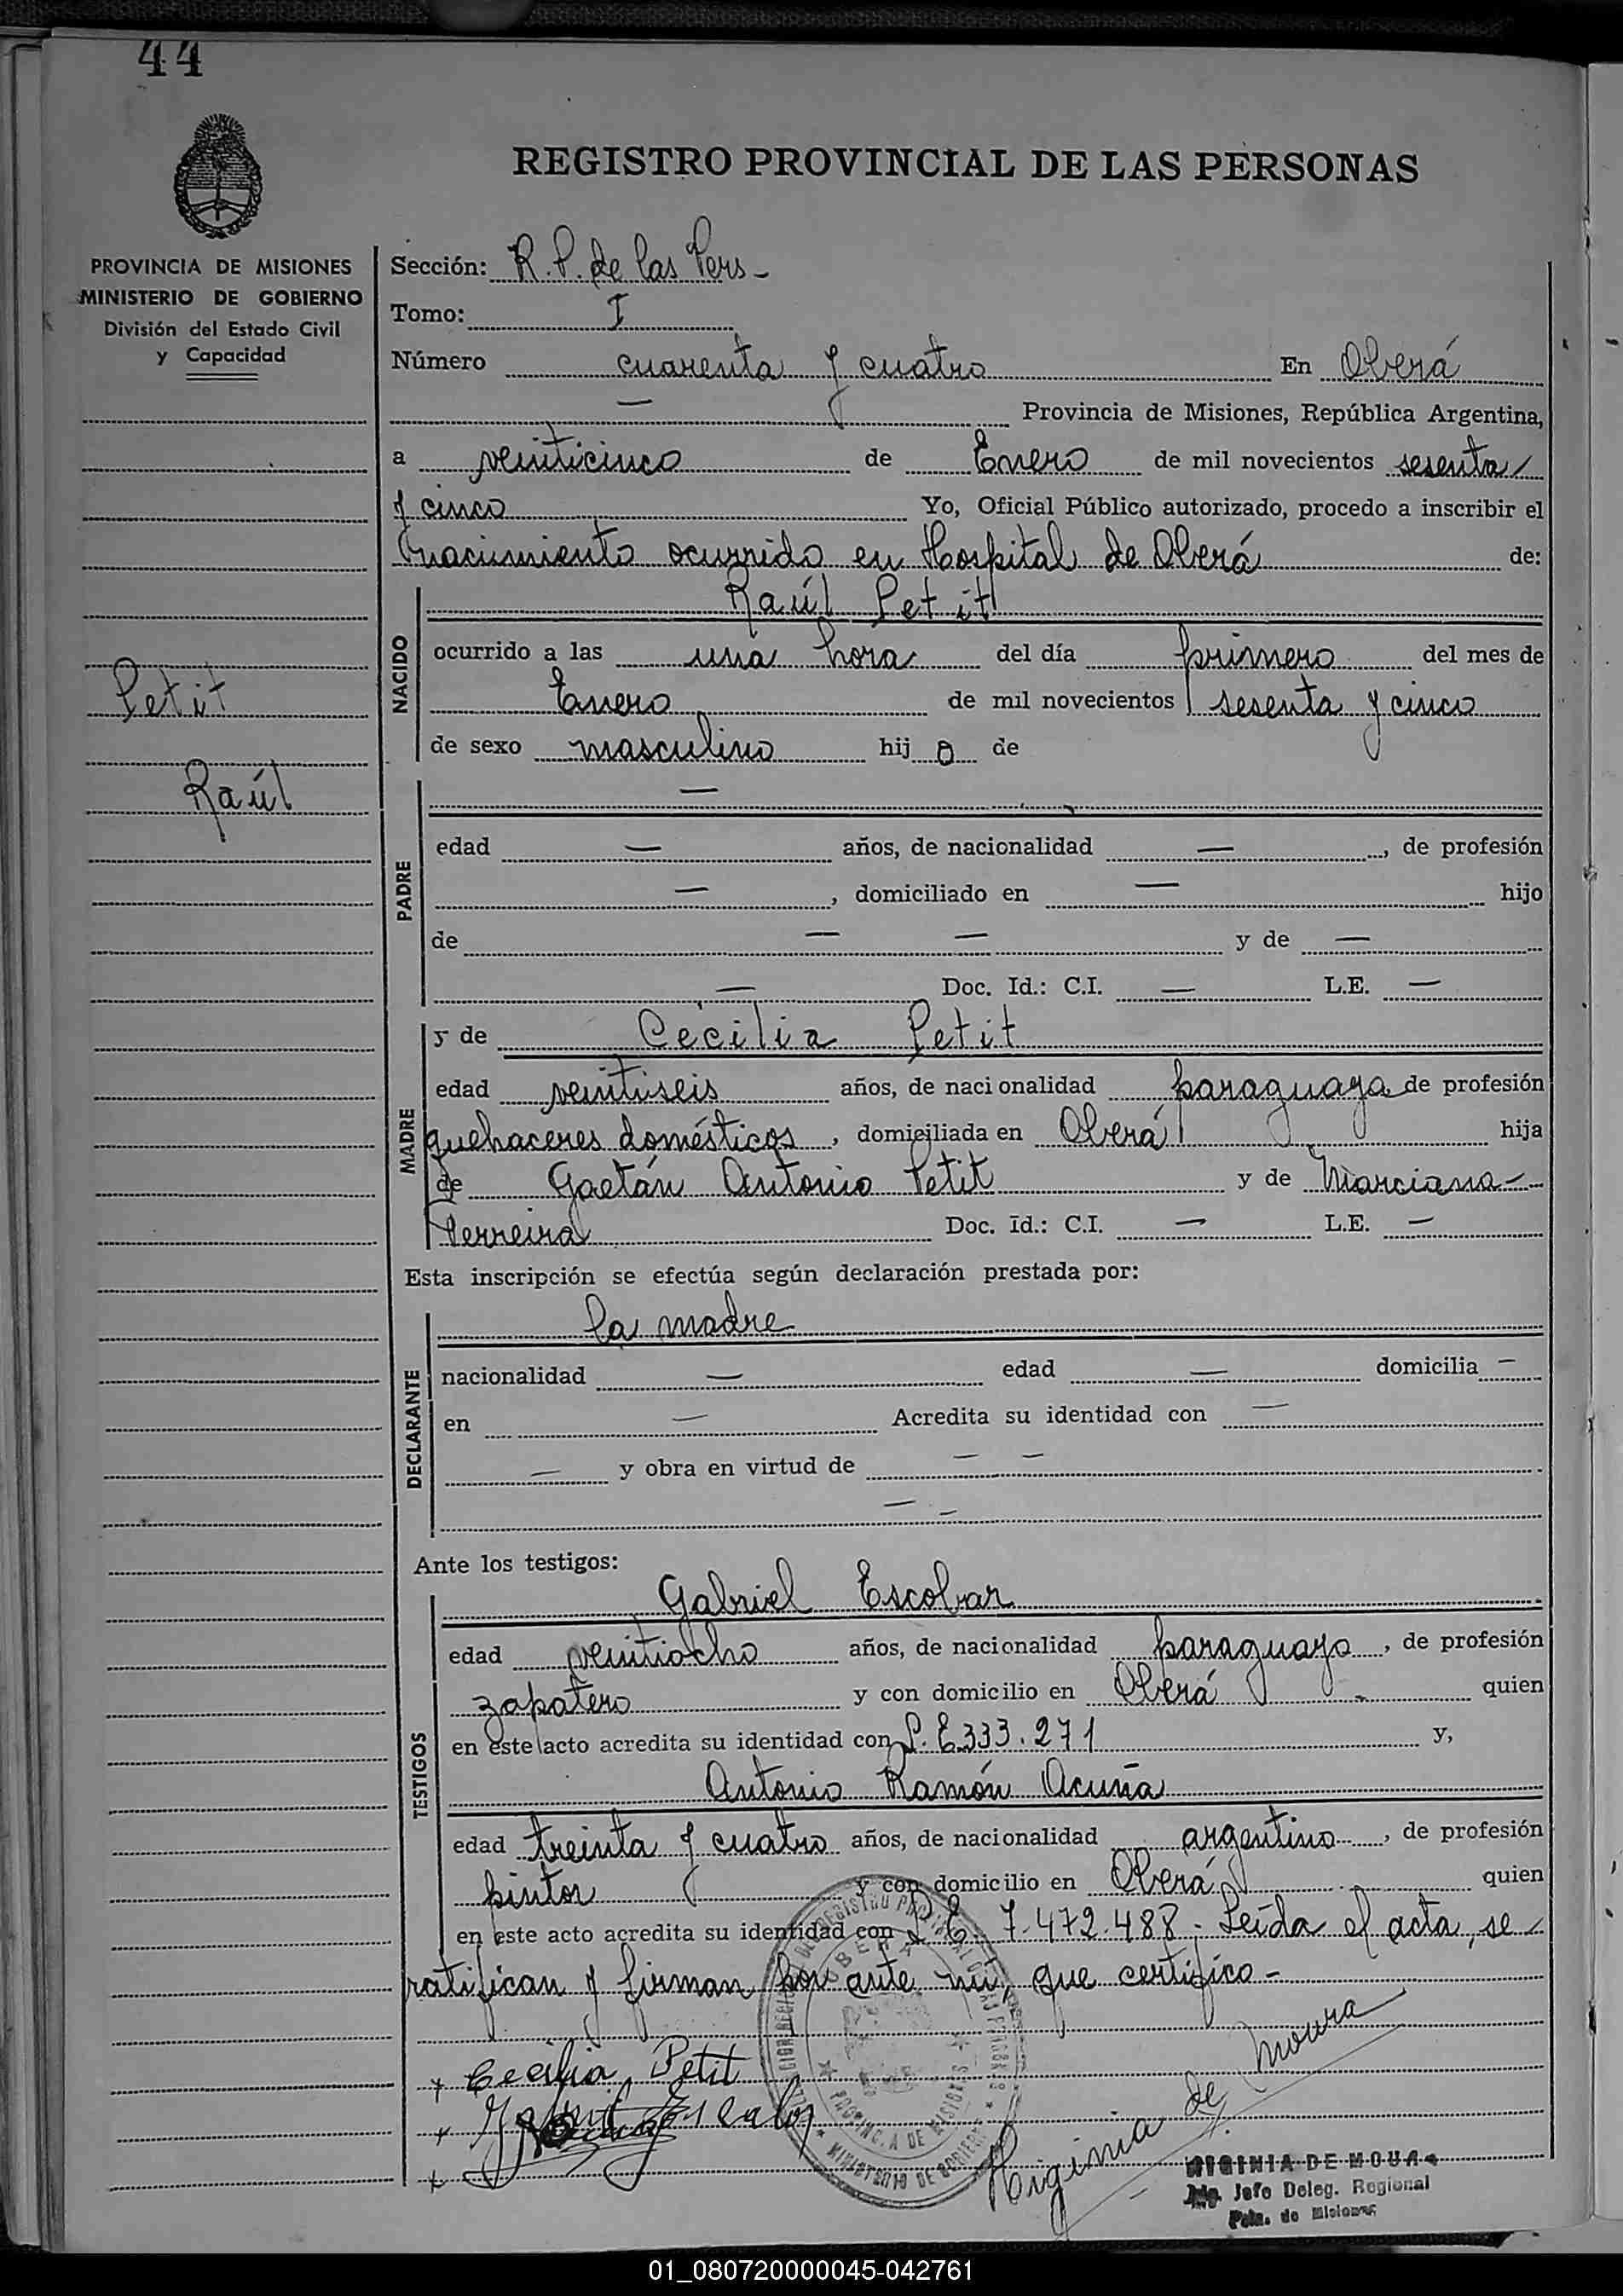 44
REGISTRO PROVINCIAL DE LAS PERSONAS
PROVINCIA DE MISIONES
MINISTERIO DE GOBIERNO
División del Estado Civil
y Capacidad
Petit
Raúl
Sección: R. P. de las Pers -
Tomo: I
Número cuarenta y cuatro En Oberá
— Provincia de Misiones, República Argentina,
a veinticinco de Enero de mil novecientos sesenta
y cinco Yo, Oficial Público autorizado, procedo a inscribir el
nacimiento ocurrido en Hospital de Oberá de:
NACIDO
Raúl Petit
ocurrido a las una hora del día primero del mes de
Enero de mil novecientos sesenta y cinco
de sexo masculino hij o de
PADRE
—
edad — años, de nacionalidad — , de profesión
— , domiciliado en — hijo
de — — y de —
— Doc. Id.: C.I. — L.E. —
MADRE
y de Cecilia Petit
edad veintiseis años, de nacionalidad paraguaya de profesión
quehaceres domésticos , domiciliada en Oberá hija
de Gaetán Antonio Petit y de Marciana -
Ferreira Doc. Id.: C.I. — L.E. —
Esta inscripción se efectúa según declaración prestada por:
DECLARANTE
la madre
nacionalidad — edad — domicilia —
en — Acredita su identidad con —
— y obra en virtud de — —
— —
Ante los testigos:
TESTIGOS
Gabriel Escobar
edad veintiocho años, de nacionalidad paraguayo , de profesión
zapatero y con domicilio en Oberá quien
en este acto acredita su identidad con 333.271 y,
Antonio Ramón Acuña
edad treinta y cuatro años, de nacionalidad argentino , de profesión
pintor y con domicilio en Oberá quien
en este acto acredita su identidad con L.E. 7.472.488. Leída el acta, se
ratifican y firman por ante mí, que certifico -
x Cecilia Petit
x
x
Higinia de Moura
HIGINIA DE MOURA
Jefe Deleg. Regional
Pcia. de Misiones
OBERA
PROVINCIA DE MISIONES
MINISTERIO DE GOBIERNO
01_080720000045-042761